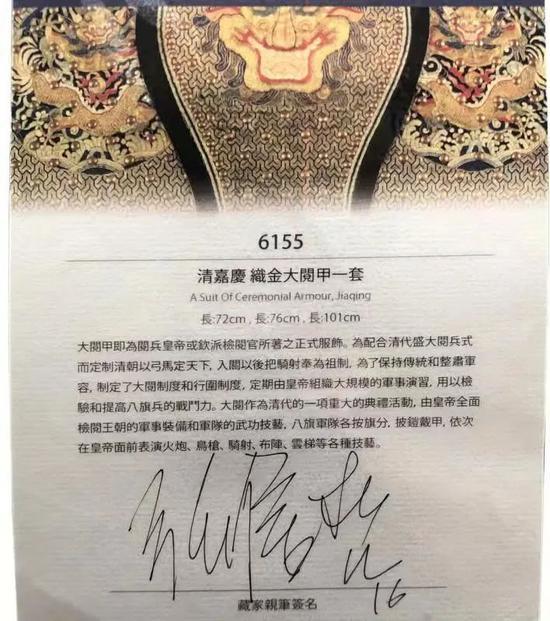 6155
清嘉慶 織金大閱甲一套
A Suit Of Ceremonial Armour, Jiaqing
長:72cm , 長:76cm , 長:101cm
大閱甲即為閱兵皇帝或欽派檢閱官所著之正式服飾。為配合清代盛大閱兵式
而定制清朝以弓馬定天下, 入關以後把騎射奉為祖制, 為了保持傳統和整肅軍
容, 制定了大閱制度和行圍制度, 定期由皇帝組織大規模的軍事演習, 用以檢
驗和提高八旗兵的戰鬥力。大閱作為清代的一項重大的典禮活動, 由皇帝全面
檢閱王朝的軍事裝備和軍隊的武功技藝, 八旗軍隊各按旗分, 披鎧戴甲, 依次
在皇帝面前表演火炮、鳥槍、騎射、布陣、雲梯等各種技藝。
16
藏家親筆簽名